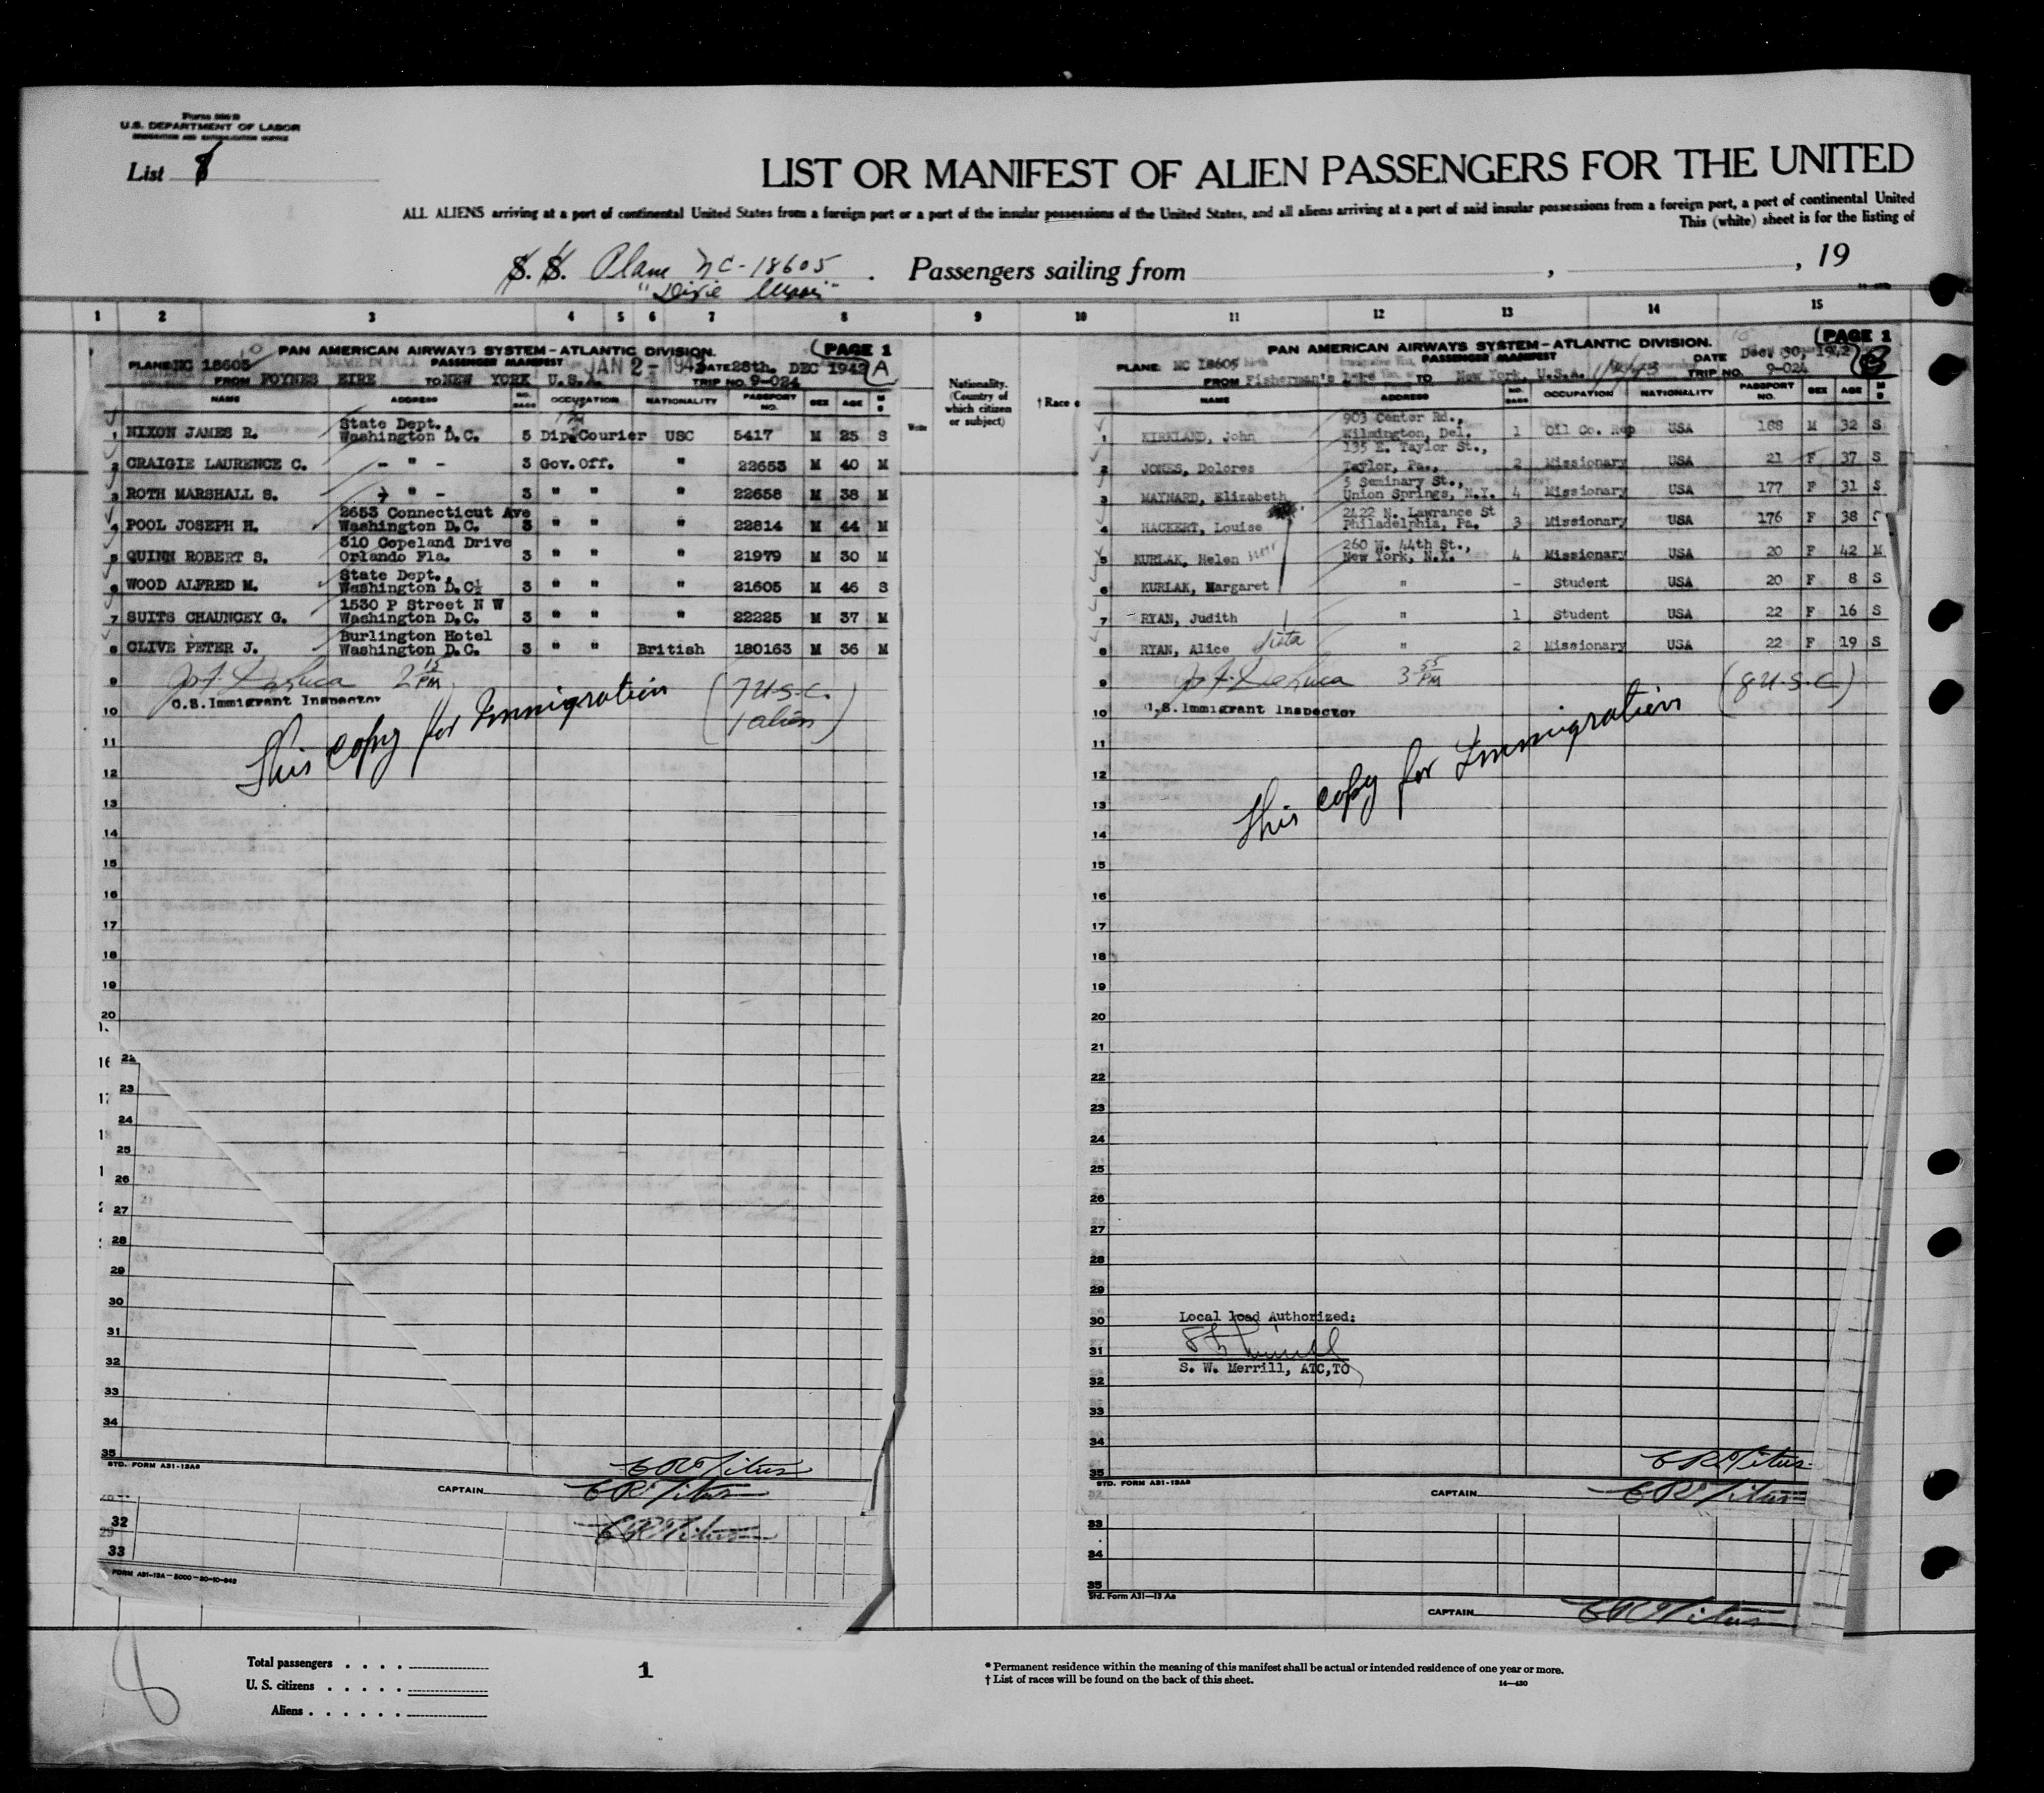 U.S. DEPARTMENT OF LABOR
List
LIST OR MANIFEST OF ALIEN PASSENGERS FOR THE UNITED
ALL ALIENS arriving at a port of continental United States from a foreign port or a port of the insular possessions of the United States, and all aliens arriving at a port of said insular possessions from a foreign port, a port of continental United
This (white) sheet is for the listing of
S. S. Plane NC-18605 . Passengers sailing from , , 19
"Dixie
1 2 3 4 5 6 7 8 9 10 11 12 13 14 15
PAN AMERICAN AIRWAYS SYSTEM-ATLANTIC DIVISION. (PAGE 1
PLANE NC 18605 PASSENGER MANIFEST JAN 2 - 1943 DATE 28th. DEC 1942 A
FROM FOYNES EIRE TO NEW YORK U.S.A. TRIP NO. 9-024
NAME ADDRESS NO. BAGS OCCUPATION NATIONALITY PASSPORT NO. SEX AGE M S
1 NIXON JAMES R. State Dept., Washington D.C. 5 Dip. Courier USC 5417 M 25 S
2 CRAIGIE LAURENCE C. - " - 3 Gov. Off. " 22653 M 40 M
3 ROTH MARSHALL S. - " - 3 " " " 22658 M 38 M
4 POOL JOSEPH H. 2653 Connecticut Ave Washington D.C. 3 " " " 22814 M 44 M
5 QUINN ROBERT S. 310 Copeland Drive Orlando Fla. 3 " " " 21979 M 30 M
6 WOOD ALFRED M. State Dept., Washington D.C. 3 " " " 21605 M 46 S
7 SUITS CHAUNCEY G. 1530 P Street N W Washington D.C. 3 " " " 22225 M 37 M
8 CLIVE PETER J. Burlington Hotel Washington D.C. 3 " " British 180163 M 36 M
9 2 15 PM (7 U.S.C.
10 U.S. Immigrant Inspector 1 alien)
This copy for Immigration
11
12
13
14
15
16
17
18
19
20
22
23
24
25
26
27
28
29
30
31
32
33
34
35
STD. FORM A31-13A6
C R Titus
CAPTAIN C R Titus
32 C R Titus
33
FORM A31-13A-5000-20-10-942
Nationality. (Country of which citizen or subject)
† Race
PAN AMERICAN AIRWAYS SYSTEM-ATLANTIC DIVISION. (PAGE 1
PLANE NC 18605 PASSENGER MANIFEST DATE Dec. 30, 1942 B
FROM Fisherman's Lake TO New York, U.S.A. TRIP NO. 9-024
NAME ADDRESS NO. BAGS OCCUPATION NATIONALITY PASSPORT NO. SEX AGE M S
1 KIRKLAND, John 903 Center Rd., Wilmington, Del. 1 Oil Co. Rep USA 188 M 32 S
2 JONES, Dolores 135 E. Taylor St., Taylor, Pa., 2 Missionary USA 21 F 37 S
3 MAYNARD, Elizabeth 5 Seminary St., Union Springs, N.Y. 4 Missionary USA 177 F 31 S
4 HACKERT, Louise 2422 N. Lawrance St Philadelphia, Pa. 3 Missionary USA 176 F 38 S
5 KURLAK, Helen 260 W. 44th St., New York, N.Y. 4 Missionary USA 20 F 42 M
6 KURLAK, Margaret " - Student USA 20 F 8 S
7 RYAN, Judith " 1 Student USA 22 F 16 S
8 RYAN, Alice " 2 Missionary USA 22 F 19 S
9 3 55 PM (8 U.S.C)
10 U.S. Immigrant Inspector
This copy for Immigration
11
12
13
14
15
16
17
18
19
20
21
22
23
24
25
26
27
28
29
30 Local load Authorized:
31
S. W. Merrill, ATC,TO
32
33
34
35 C R Titus
STD. FORM A31-13A6
CAPTAIN C R Titus
33
34
35
Std. Form A31-13 Aa
CAPTAIN C R Titus
8
Total passengers . . . .
U. S. citizens . . . . .
Aliens . . . . . .
1
* Permanent residence within the meaning of this manifest shall be actual or intended residence of one year or more.
† List of races will be found on the back of this sheet.
14-430